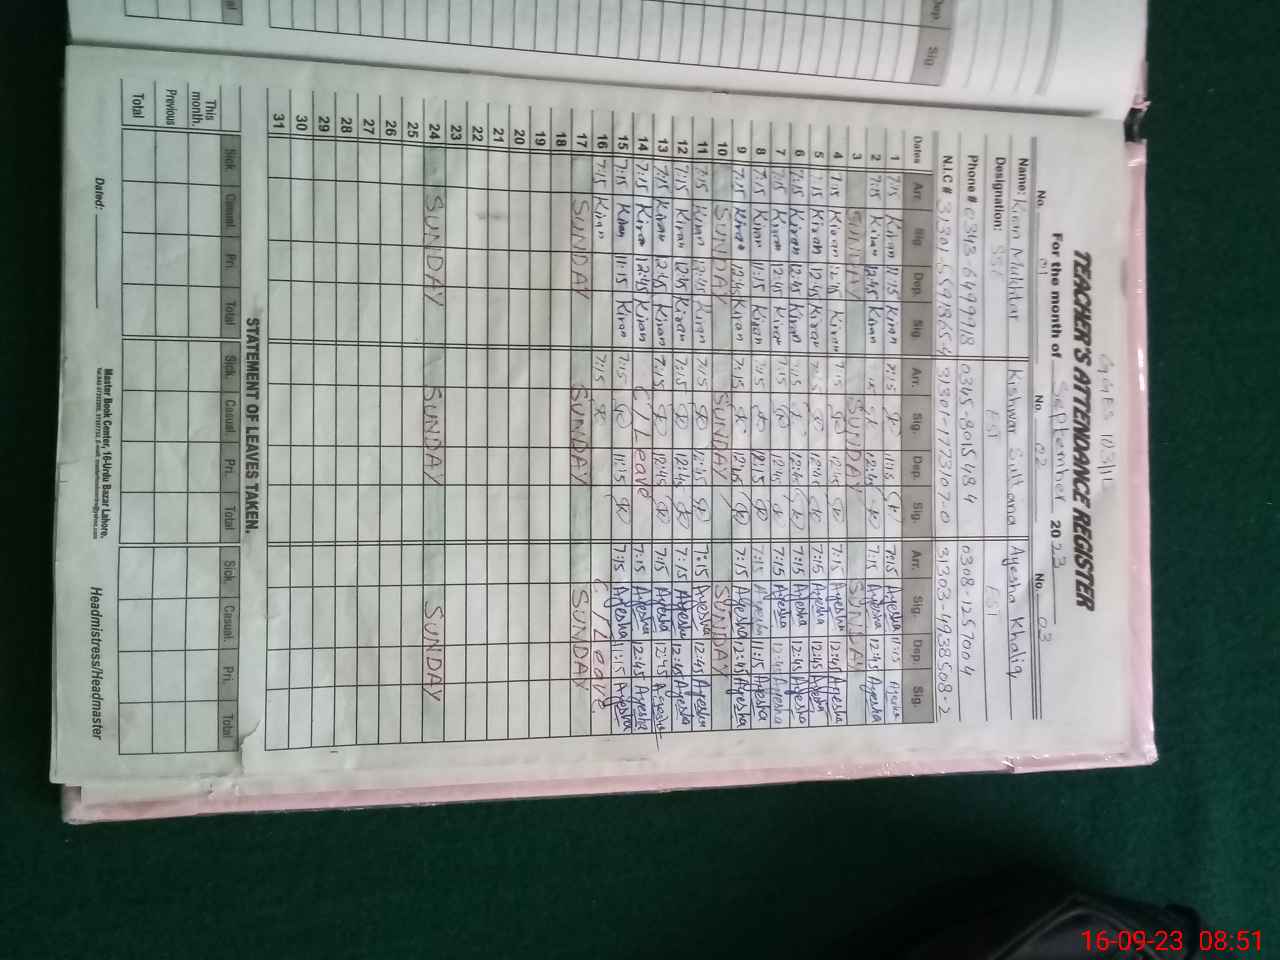 GGES 103/1L
TEACHER'S ATTENDANCE REGISTER
For the month of September 2023
No. 01 No. 02 No. 03
Name: Kiran Mukhtar Kishwar Sultana Ayesha Khaliq
Designation: SSE EST EST
Phone # 0343-6499918 0345-8015484 0308-1257004
N.I.C # 31301-5591365-4 31301-1773107-0 31303-4938508-2
Dates Arr. Sig. Dep. Sig. Arr. Sig. Dep. Sig. Arr. Sig. Dep. Sig.
1 7:15 Kiran 11:15 Kiran 7:15 11:15 7:15 Ayesha 11:15 Ayesha
2 7:15 Kiran 12:45 Kiran 7:15 12:45 7:15 Ayesha 12:45 Ayesha
3 SUNDAY SUNDAY SUNDAY
4 7:15 Kiran 12:45 Kiran 7:15 12:45 7:15 Ayesha 12:45 Ayesha
5 7:15 Kiran 12:45 Kiran 7:15 12:45 7:15 Ayesha 12:45 Ayesha
6 7:15 Kiran 12:45 Kiran 7:15 12:45 7:15 Ayesha 12:45 Ayesha
7 7:15 Kiran 12:45 Kiran 7:15 12:45 7:15 Ayesha 12:45 Ayesha
8 7:15 Kiran 11:15 Kiran 7:15 7:15 Ayesha 11:15 Ayesha
9 7:15 Kiran 12:45 Kiran 7:15 12:45 7:15 Ayesha 12:45 Ayesha
10 SUNDAY SUNDAY SUNDAY
11 7:15 Kiran 12:45 Kiran 7:15 12:45 7:15 Ayesha 12:45 Ayesha
12 7:15 Kiran 12:45 Kiran 7:15 12:45 7:15 Ayesha 12:45 Ayesha
13 7:15 Kiran 12:45 Kiran 7:15 12:45 7:15 Ayesha 12:45 Ayesha
14 7:15 Kiran 12:45 Kiran C/Leave 7:15 Ayesha 12:45 Ayesha
15 7:15 Kiran 11:15 Kiran 7:15 11:15 7:15 Ayesha 11:15 Ayesha
16 7:15 Kiran 7:15 C/Leave
17 SUNDAY SUNDAY SUNDAY
18
19
20
21
22
23
24 SUNDAY SUNDAY SUNDAY
25
26
27
28
29
30
31
STATEMENT OF LEAVES TAKEN.
Sick. Casual. Pri. Total Sick. Casual. Pri. Total Sick. Casual. Pri. Total
This month.
Previous
Total
Dated:
Master Book Center, 16-Urdu Bazar Lahore.
Headmistress/Headmaster
Dep. Sig.
16-09-23 08:51